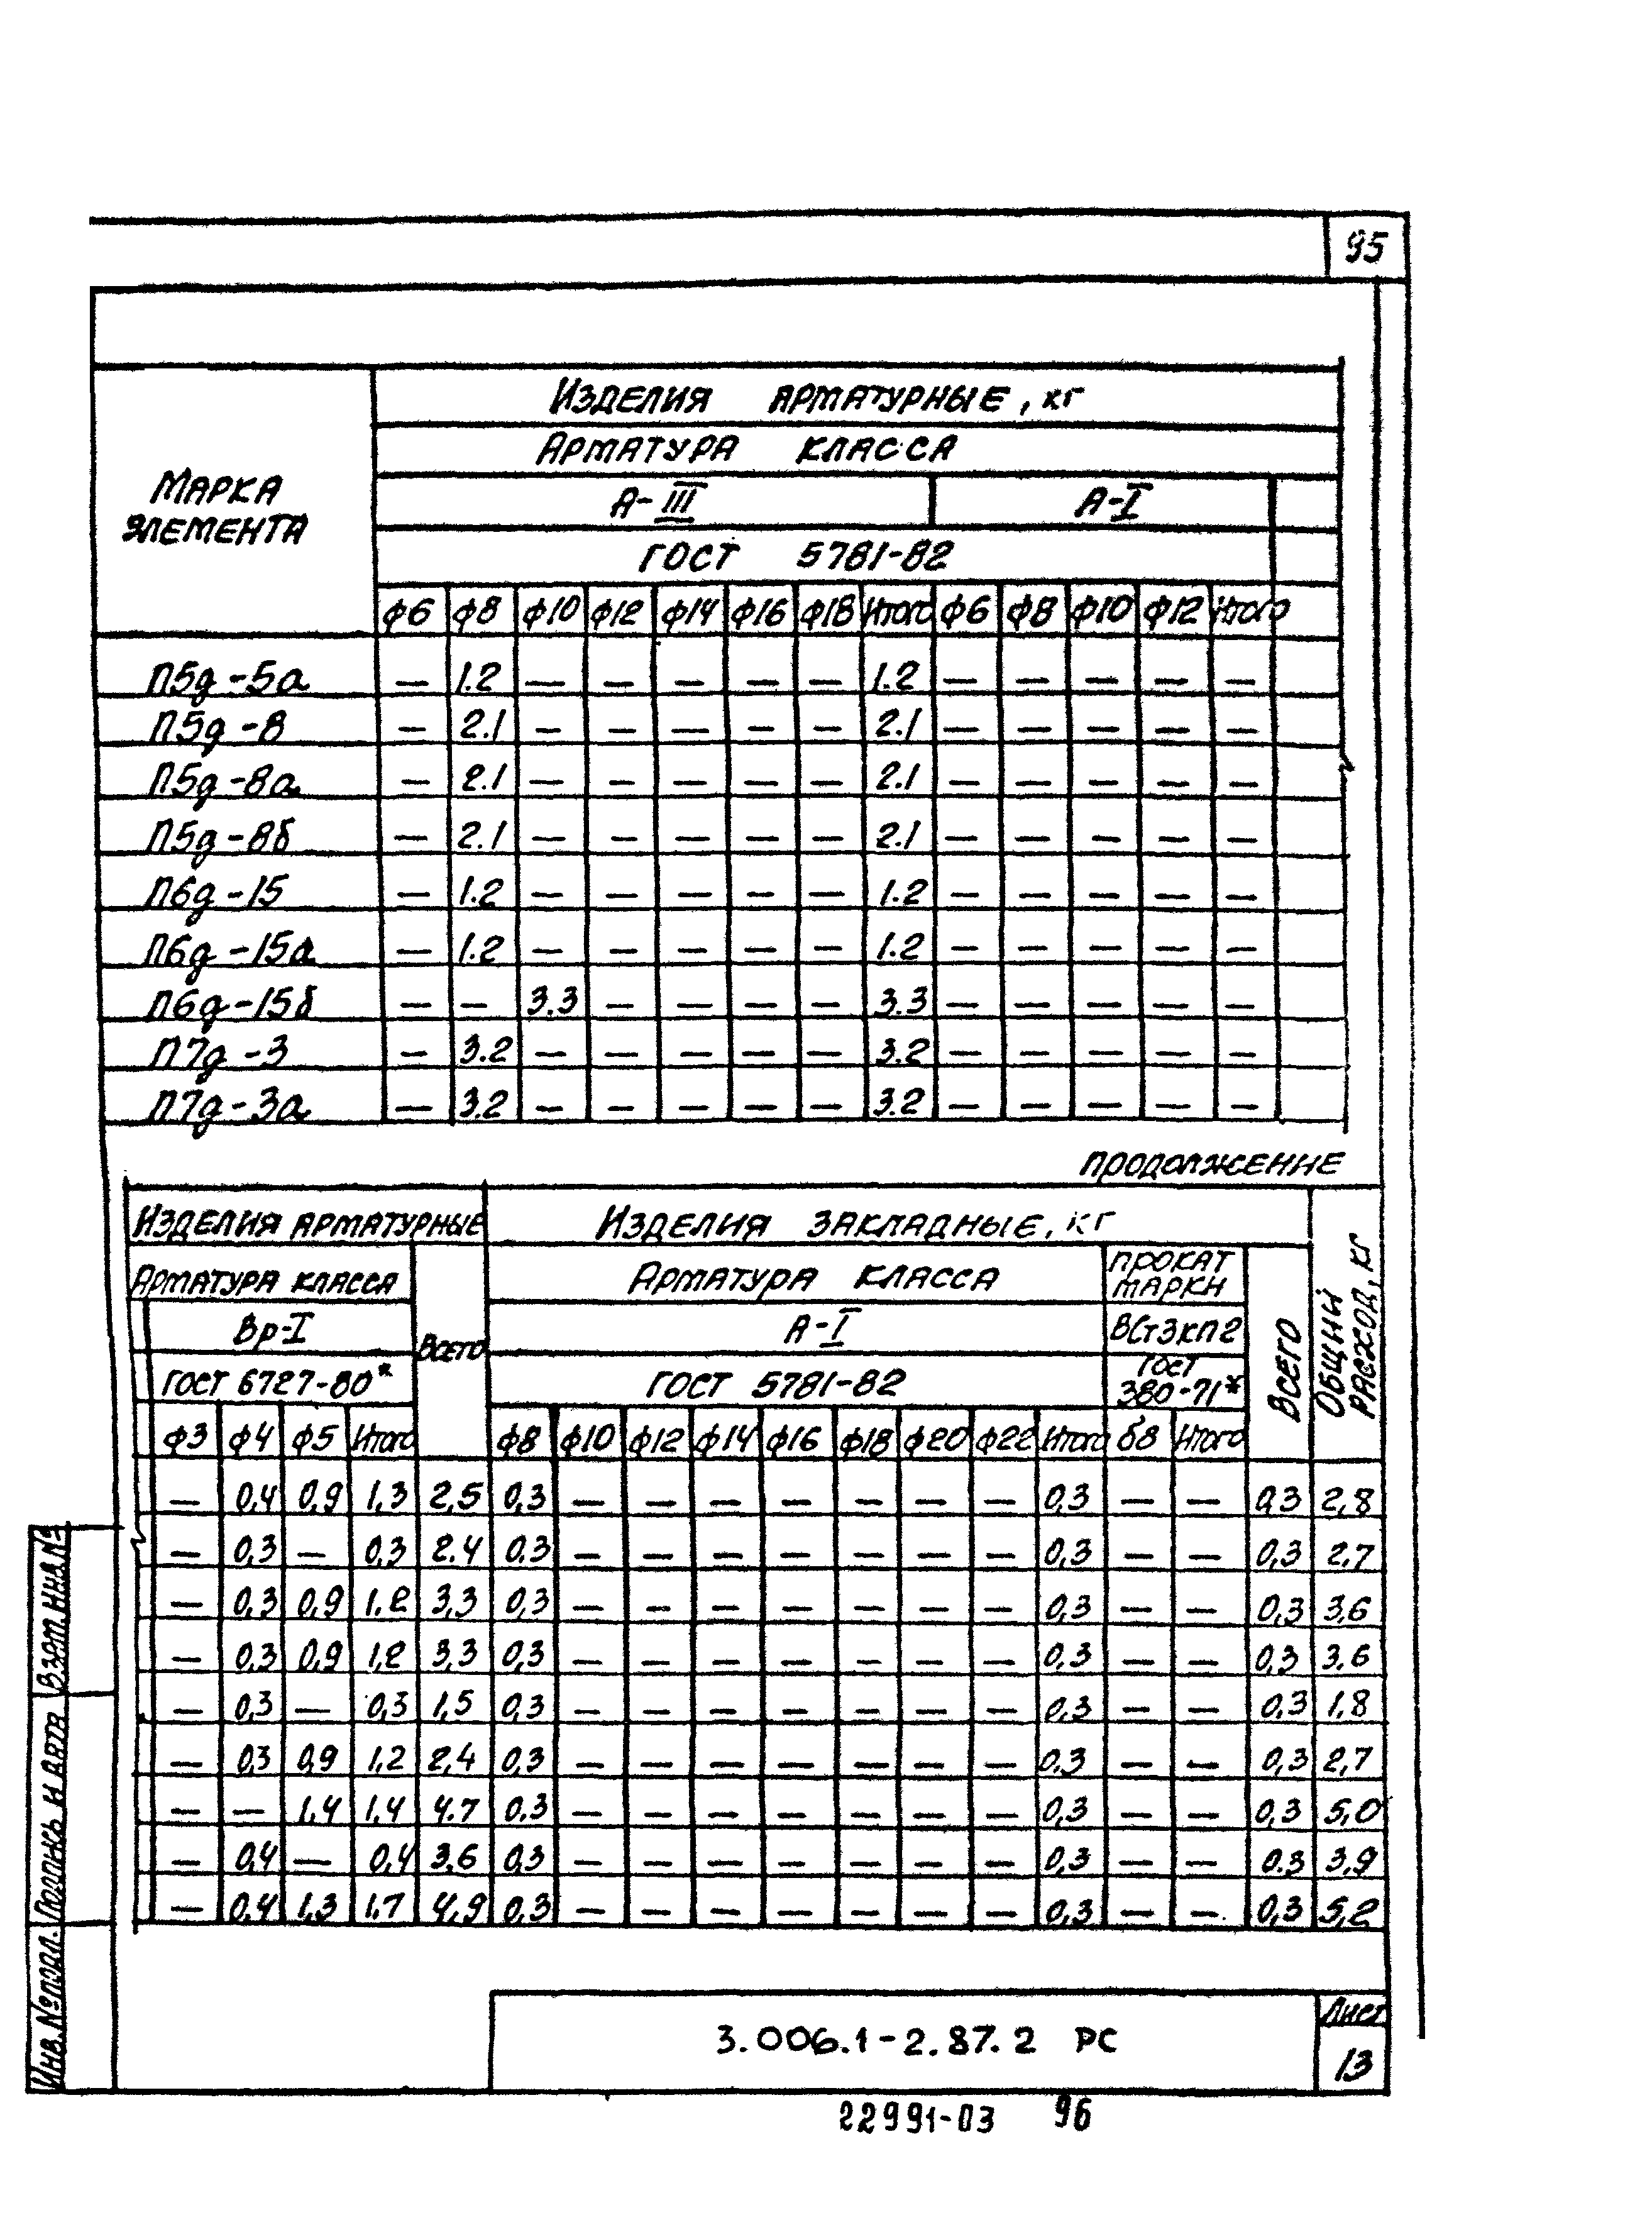 95
Изделия арматурные, кг
Арматура класса
Марка элемента
А-III А-I
ГОСТ 5781-82
ф6 ф8 ф10 ф12 ф14 ф16 ф18 Итого ф6 ф8 ф10 ф12 Итого
П5д-5а — 1.2 — — — — — 1.2 — — — — —
П5д-8 — 2.1 — — — — — 2.1 — — — — —
П5д-8а — 2.1 — — — — — 2.1 — — — — —
П5д-8б — 2.1 — — — — — 2.1 — — — — —
П6д-15 — 1.2 — — — — — 1.2 — — — — —
П6д-15а — 1.2 — — — — — 1.2 — — — — —
П6д-15б — — 3.3 — — — — 3.3 — — — — —
П7д-3 — 3.2 — — — — — 3.2 — — — — —
П7д-3а — 3.2 — — — — — 3.2 — — — — —
продолжение
Изделия арматурные Изделия закладные, кг Общий расход, кг
Арматура класса Всего Арматура класса прокат марки Всего
Вр-I А-I ВСт3кп2
ГОСТ 6727-80* ГОСТ 5781-82 ГОСТ 380-71*
ф3 ф4 ф5 Итого ф8 ф10 ф12 ф14 ф16 ф18 ф20 ф22 Итого б8 Итого
— 0,4 0,9 1,3 2,5 0,3 — — — — — — — 0,3 — — 0,3 2,8
— 0,3 — 0,3 2.4 0,3 — — — — — — — 0,3 — — 0,3 2,7
— 0,3 0,9 1,2 3,3 0,3 — — — — — — — 0,3 — — 0,3 3,6
— 0,3 0,9 1,2 3,3 0,3 — — — — — — — 0,3 — — 0,3 3.6
— 0,3 — 0,3 1,5 0,3 — — — — — — — 0,3 — — 0,3 1,8
— 0,3 0,9 1,2 2,4 0,3 — — — — — — — 0,3 — — 0,3 2,7
— — 1,4 1,4 4.7 0,3 — — — — — — — 0,3 — — 0,3 5,0
— 0,4 — 0,4 3,6 0,3 — — — — — — — 0,3 — — 0.3 3,9
— 0,4 1,3 1,7 4,9 0,3 — — — — — — — 0,3 — — 0,3 5,2
Взам. инв. №
Подпись и дата
Инв. № подл.
3.006.1-2.87.2 РС
Лист
13
22991-03 96